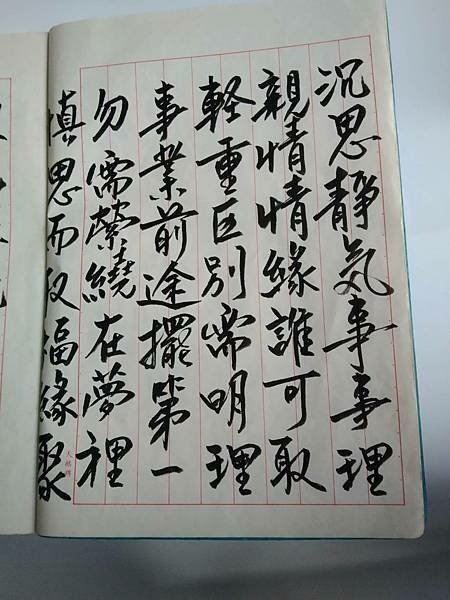 沉思靜氣事事理
親情情緣誰可取
軽重区別需明理
事業前途擺第一
勿需縈繞在夢裡
慎思而福緣聚